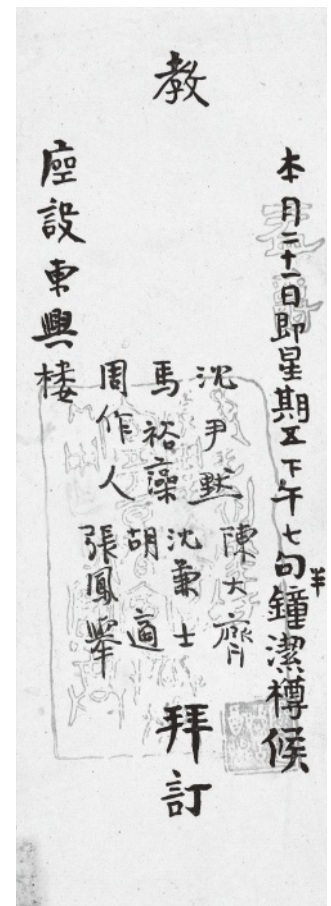 本月二十一日即星期五下午七句半鐘潔樽候
教
沈尹默 陳大齊
馬裕藻 沈兼士
周作人 胡適
張鳳舉
拜訂
座設東興楼